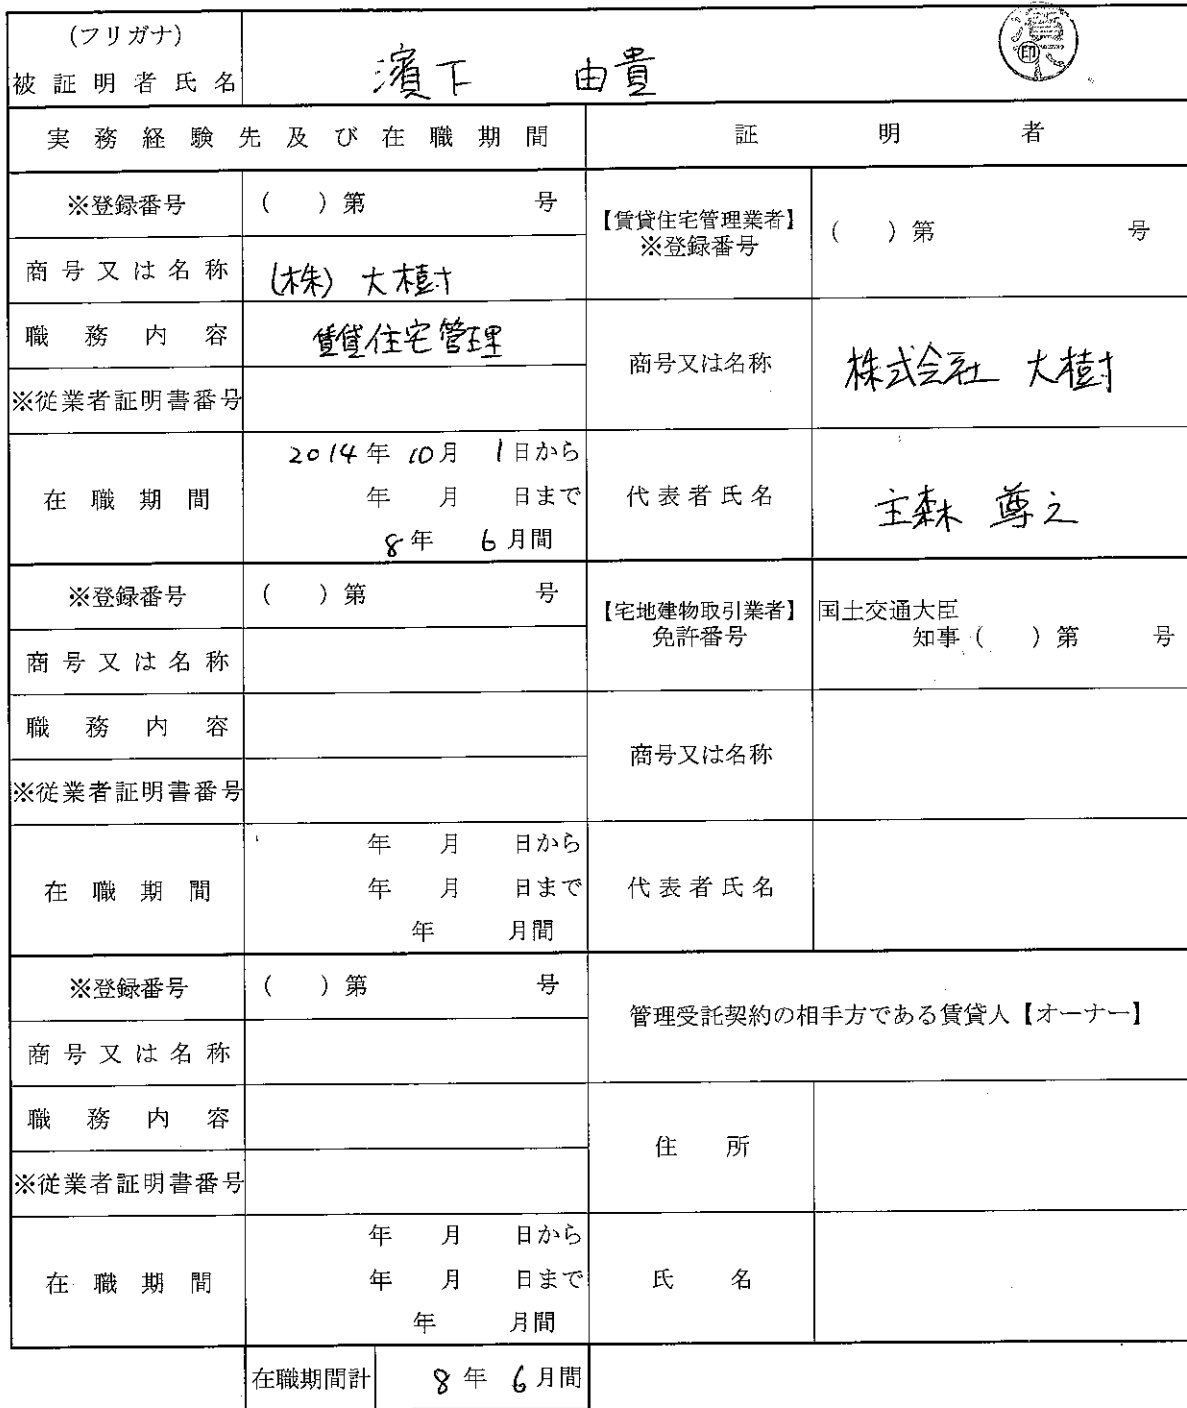 (フリガナ)
被証明者氏名 濱下 由貴 印
実務経験先及び在職期間 証明者
※登録番号 ( )第 号
【賃貸住宅管理業者】
※登録番号 ( )第 号
商号又は名称 (株)大樹
職務内容 賃貸住宅管理
商号又は名称 株式会社 大樹
※従業者証明書番号
在職期間 2014年 10月 1日から
年 月 日まで
8年 6月間
代表者氏名 主森 尊之
※登録番号 ( )第 号
【宅地建物取引業者】
免許番号
国土交通大臣
知事( )第 号
商号又は名称
職務内容
商号又は名称
※従業者証明書番号
在職期間 年 月 日から
年 月 日まで
年 月間
代表者氏名
※登録番号 ( )第 号
管理受託契約の相手方である賃貸人【オーナー】
商号又は名称
職務内容
住所
※従業者証明書番号
在職期間 年 月 日から
年 月 日まで
年 月間
氏名
在職期間計 8年 6月間